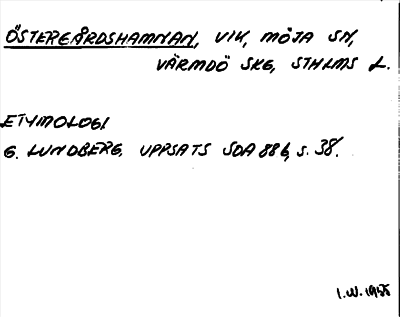 ÖSTERGÅRDSHAMNAN, VIK, MÖJA SN,
VÄRMDÖ SKG, STHLMS L.
ETYMOLOGI
G. LUNDBERG. UPPSATS SOA 886, s. 38.
I.W. 1955